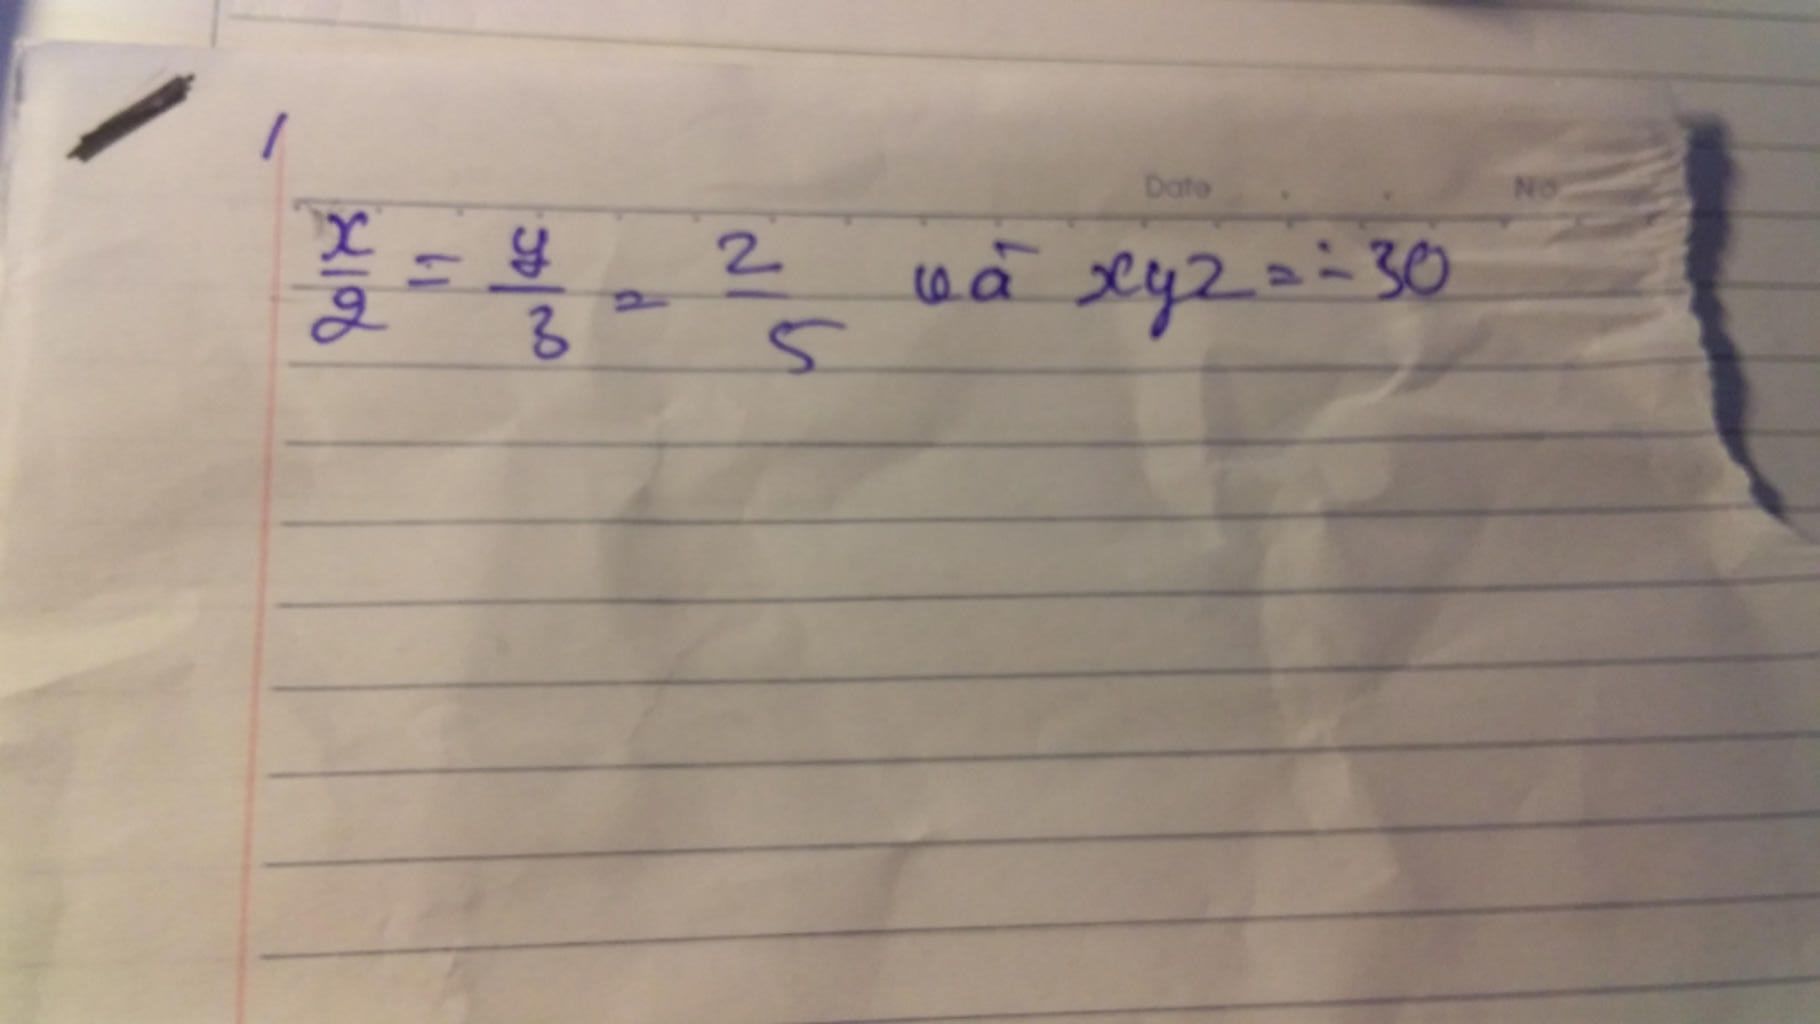 Date No
x/2 = y/3 = z/5 và xyz = -30